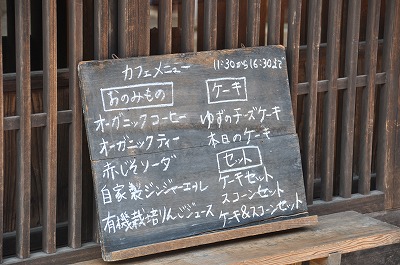 カフェメニュー 11:30から16:30まで
おのみもの
オーガニックコーヒー
オーガニックティー
赤じそソーダ
自家製ジンジャーエール
有機栽培りんごジュース
ケーキ
ゆずのチーズケーキ
本日のケーキ
セット
ケーキセット
スコーンセット
ケーキ&スコーンセット